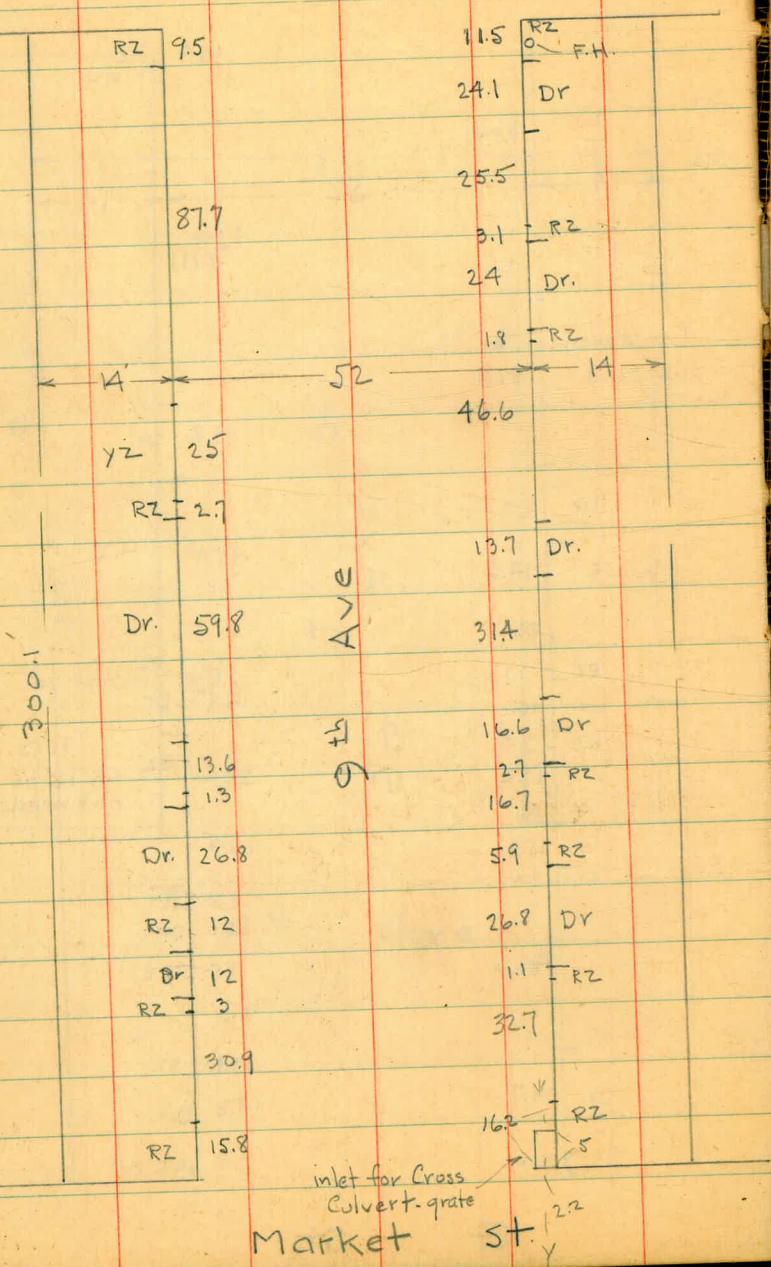 RZ 9.5
87.7
14'
YZ 25
RZ 2.7
Dr. 59.8
300.1'
13.6
1.3
Dr. 26.8
RZ 12
Dr 12
RZ 3
30.9
RZ 15.8
52
9th Ave
11.5 RZ
F.H.
24.1 Dr
25.5
3.1 RZ
24 Dr.
1.8 RZ
14
46.6
13.7 Dr.
31.4
16.6 Dr
2.7 RZ
16.7
5.9 RZ
26.8 Dr
1.1 RZ
32.7
16.2 RZ
5
inlet for Cross
Culvert-grate
2.2
Market St.